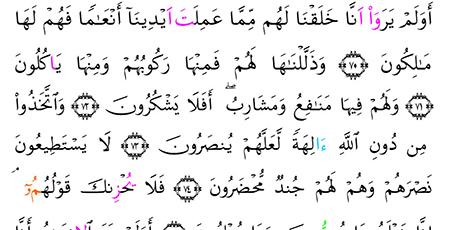 أَوَلَمْ يَرَوَاْ اَنَّا خَلَقْنَا لَهُم مِّمَّا عَمِلَتَ اَيْدِينَآ أَنْعَٰمٗا فَهُمْ لَهَا
مَٰلِكُونَ ٧٠ وَذَلَّلْنَٰهَا لَهُمْ فَمِنْهَا رَكُوبُهُمْ وَمِنْهَا يَاكُلُونَ
٧١ وَلَهُمْ فِيهَا مَنَٰفِعُ وَمَشَارِبُۖ أَفَلَا يَشْكُرُونَ ٧٢ وَاتَّخَذُواْ
مِن دُونِ اللَّهِ ءَالِهَةٗ لَّعَلَّهُمْ يُنصَرُونَ ٧٣ لَا يَسْتَطِيعُونَ
نَصْرَهُمْ وَهُمْ لَهُمْ جُندٞ مُّحْضَرُونَ ٧٤ فَلَا يُحْزِنكَ قَوْلُهُمُۥٓ